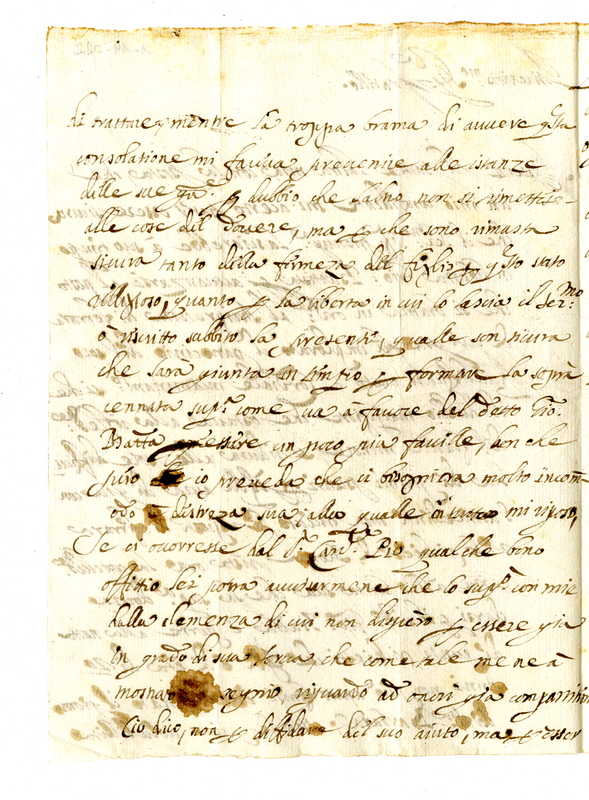 di trattare, mentre la troppa brama di avvere q.sta
consolatione mi faccia prevenire alle istanze
delle sue p dubbio che l'al.no non si rimettesse
alle cose del dovere, ma p che sono rimasta
sicura tanto della firmeza del figlio p q.sto stato
religioso, quanto p la liberta in cui lo lascia il Ser.mo
ò scritto subbito la presente, qualle son sicura
che sarà giunta in tempo p formare la sopra
cennata sup.ca come va à favore del detto Gio.
Batta essere un poco più facille, ben che
io preveda che ci bisognierà molto incom
odo è distreza sua, alla qualle mi riposo,
Se ci ocorresse dal S.r Card. Pio qualche bono
offitio Lei potrà avvisarmene che lo sup.co con mie
dalla clemenza di cui non dispero p essere già
in grado di sua serva, che come tale me ne à
mostrato segnio, riguardo ad onori già compartiti
Ciò dico, non p diffidare del suo aiuto, ma p esser